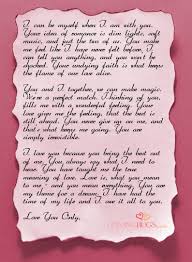 I can be myself when I am with you.
Your idea of romance is dim lights, soft
music, and just the two of us. You make
me feel like I have never felt before, I
can tell you anything, and you won't be
shocked. Your undying faith is what keeps
the flame of our love alive.
You and I together, we can make magic.
We're a perfect match. Thinking of you,
fills me with a wonderful feeling. Your
love gives me the feeling, that the best is
still ahead. You never give up on me, and
that's what keeps me going. You are
simply irresistible.
I love you because you bring the best out
of me. You always say what I need to
hear. You have taught me the true
meaning of love. Love is, what you mean
to me - and you mean everything. You are
my theme for a dream. I have had the time
of my life and I owe it all to you.
Love You Only.